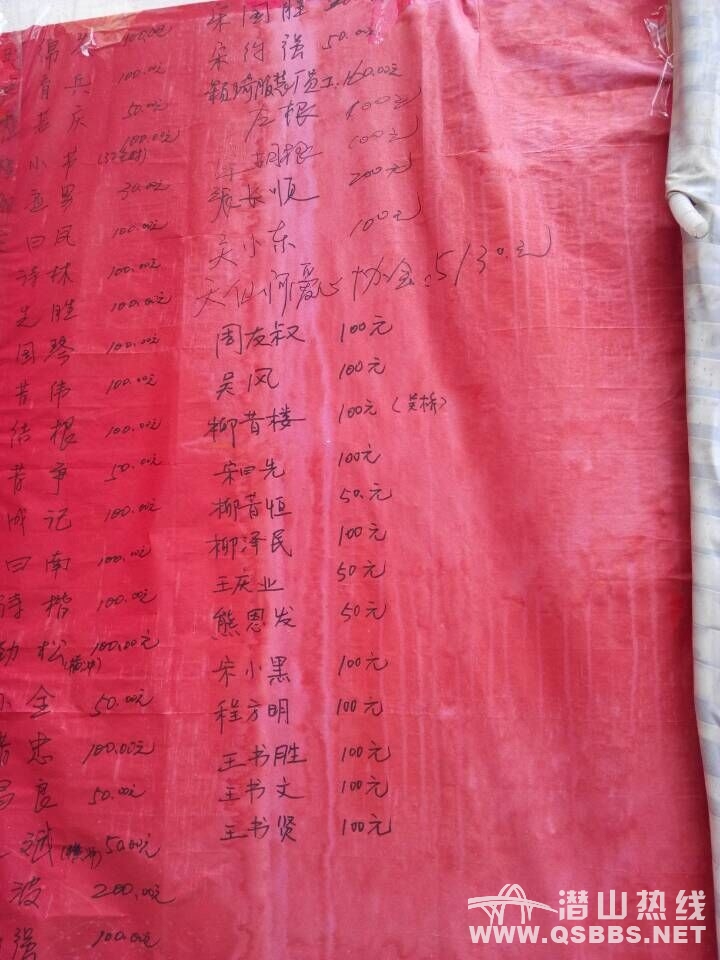 100.00元
育兵 100.00元
庆 50.00元
100.00元
小苟
30.00元
曰凤 100.00元
诗林 100.00元
先胜 100.00元
国琴 100.00元
昔伟 100.00元
结根 100.00元
昔争 50.00元
成记 100.00元
曰南 100.00元
诗楷 100.00元
劲松 100.00元
小全 50.00元
昔忠 100.00元
昌良 50.00元
斌 50.00元
波 200.00元
强 100.00元
宋国胜
宋结强 50.00元
服装厂员工 160.00元
左根 100元
胡根 100元
张长顺 200元
吴小东 100元
天仙河爱心协会:5130元
周友叔 100元
吴风 100元
柳昔楼 100元(吴桥)
宋曰先 100元
柳昔恒 50元
柳泽民 100元
王庆业 50元
熊恩发 50元
宋小黑 100元
程方明 100元
王书胜 100元
王书文 100元
王书贤 100元
潜山热线
WWW.QSBBS.NET